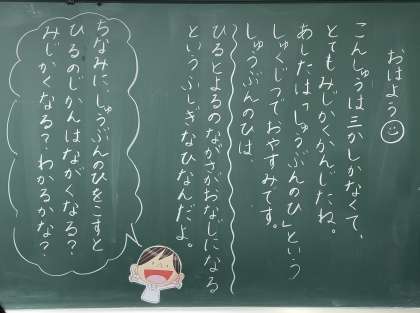 おはよう
こんしゅうは三かしかなくて、
とてもみじかくかんじたね。
あしたは「しゅうぶんのひ」という
しゅくじつでおやすみです。
しゅうぶんのひは
ひるとよるのながさがおなじになる
というふしぎなひなんだよ。
ちなみに、しゅうぶんのひをこすと
ひるのじかんはながくなる？
みじかくなる？わかるかな？